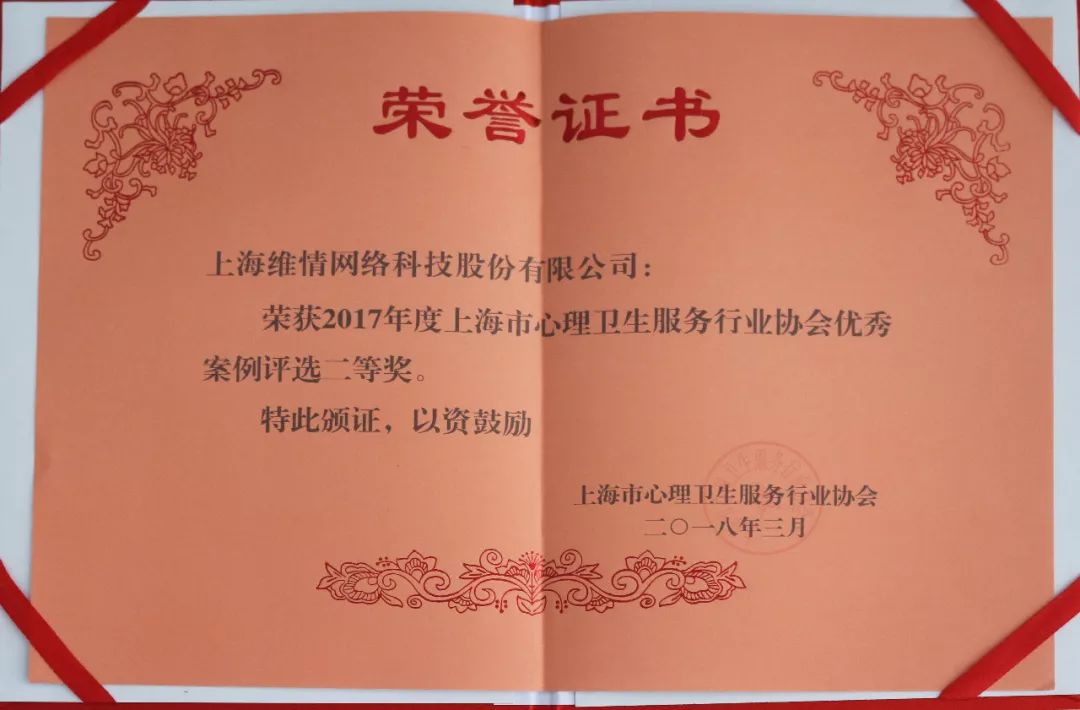 荣誉证书
上海维情网络科技股份有限公司：
荣获2017年度上海市心理卫生服务行业协会优秀
案例评选二等奖。
特此颁证，以资鼓励
上海市心理卫生服务行业协会
二〇一八年三月